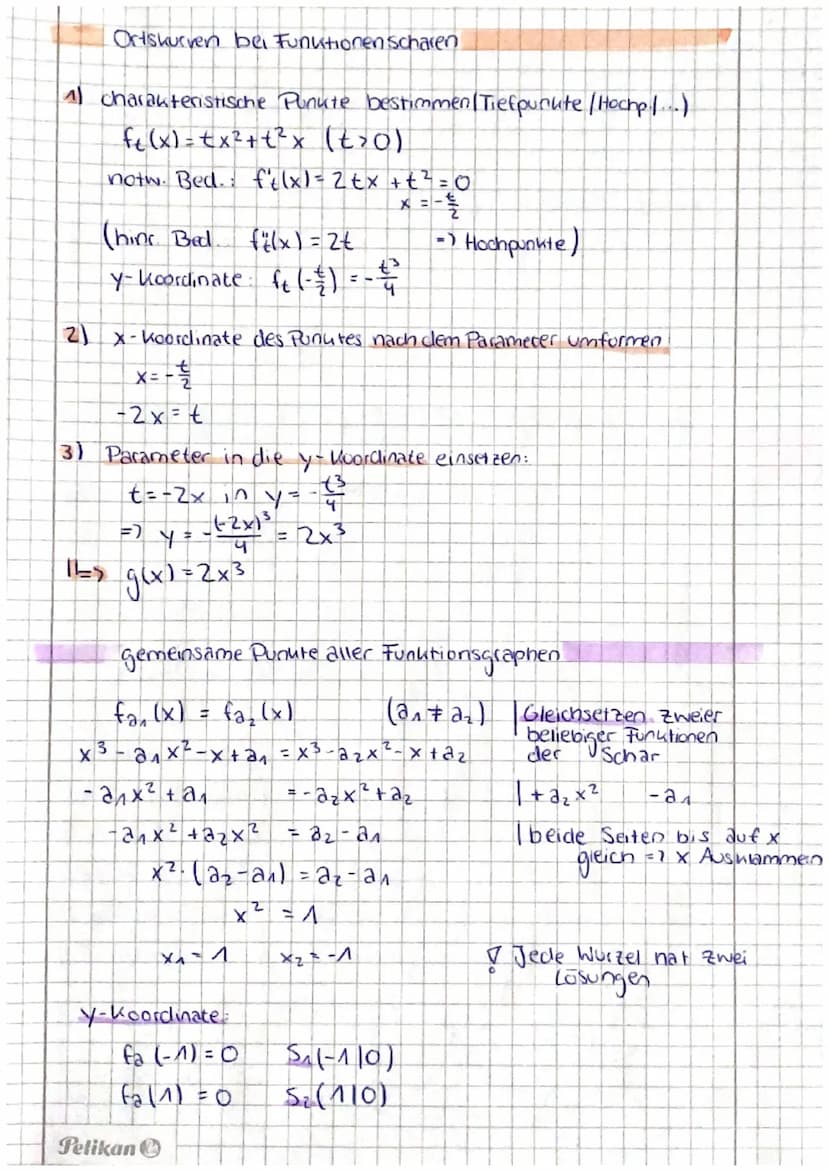 Ortskurven bei Funktionenscharen
1) charakteristische Punkte bestimmen (Tiefpunkte / Hochp. / ...)
fₜ(x) = tx² + t²x (t > 0)
notw. Bed.: f'ₜ(x) = 2tx + t² = 0
x = -t/2
(hinr. Bed. f''ₜ(x) = 2t => Hochpunkte)
y-Koordinate: fₜ(-t/2) = -t³/4
2) x-Koordinate des Punktes nach dem Parameter umformen:
x = -t/2
-2x = t
3) Parameter in die y-Koordinate einsetzen:
t = -2x in y = -t³/4
=> y = -(-2x)³/4 = 2x³
|↳ g(x) = 2x³
gemeinsame Punkte aller Funktionsgraphen
fa₁(x) = fa₂(x) (a₁ ≠ a₂) | Gleichsetzen zweier
beliebiger Funktionen
x³ - a₁x² - x + a₁ = x³ - a₂x² - x + a₂ der Schar
-a₁x² + a₁ = -a₂x² + a₂ | + a₂x² - a₁
-a₁x² + a₂x² = a₂ - a₁ | beide Seiten bis auf x
gleich => x Ausklammern
x² · (a₂ - a₁) = a₂ - a₁
x² = 1
x₁ = 1 x₂ = -1 ! Jede Wurzel hat zwei
Lösungen
y-Koordinate:
fa(-1) = 0 S₁(-1|0)
fa(1) = 0 S₂(1|0)
Pelikan